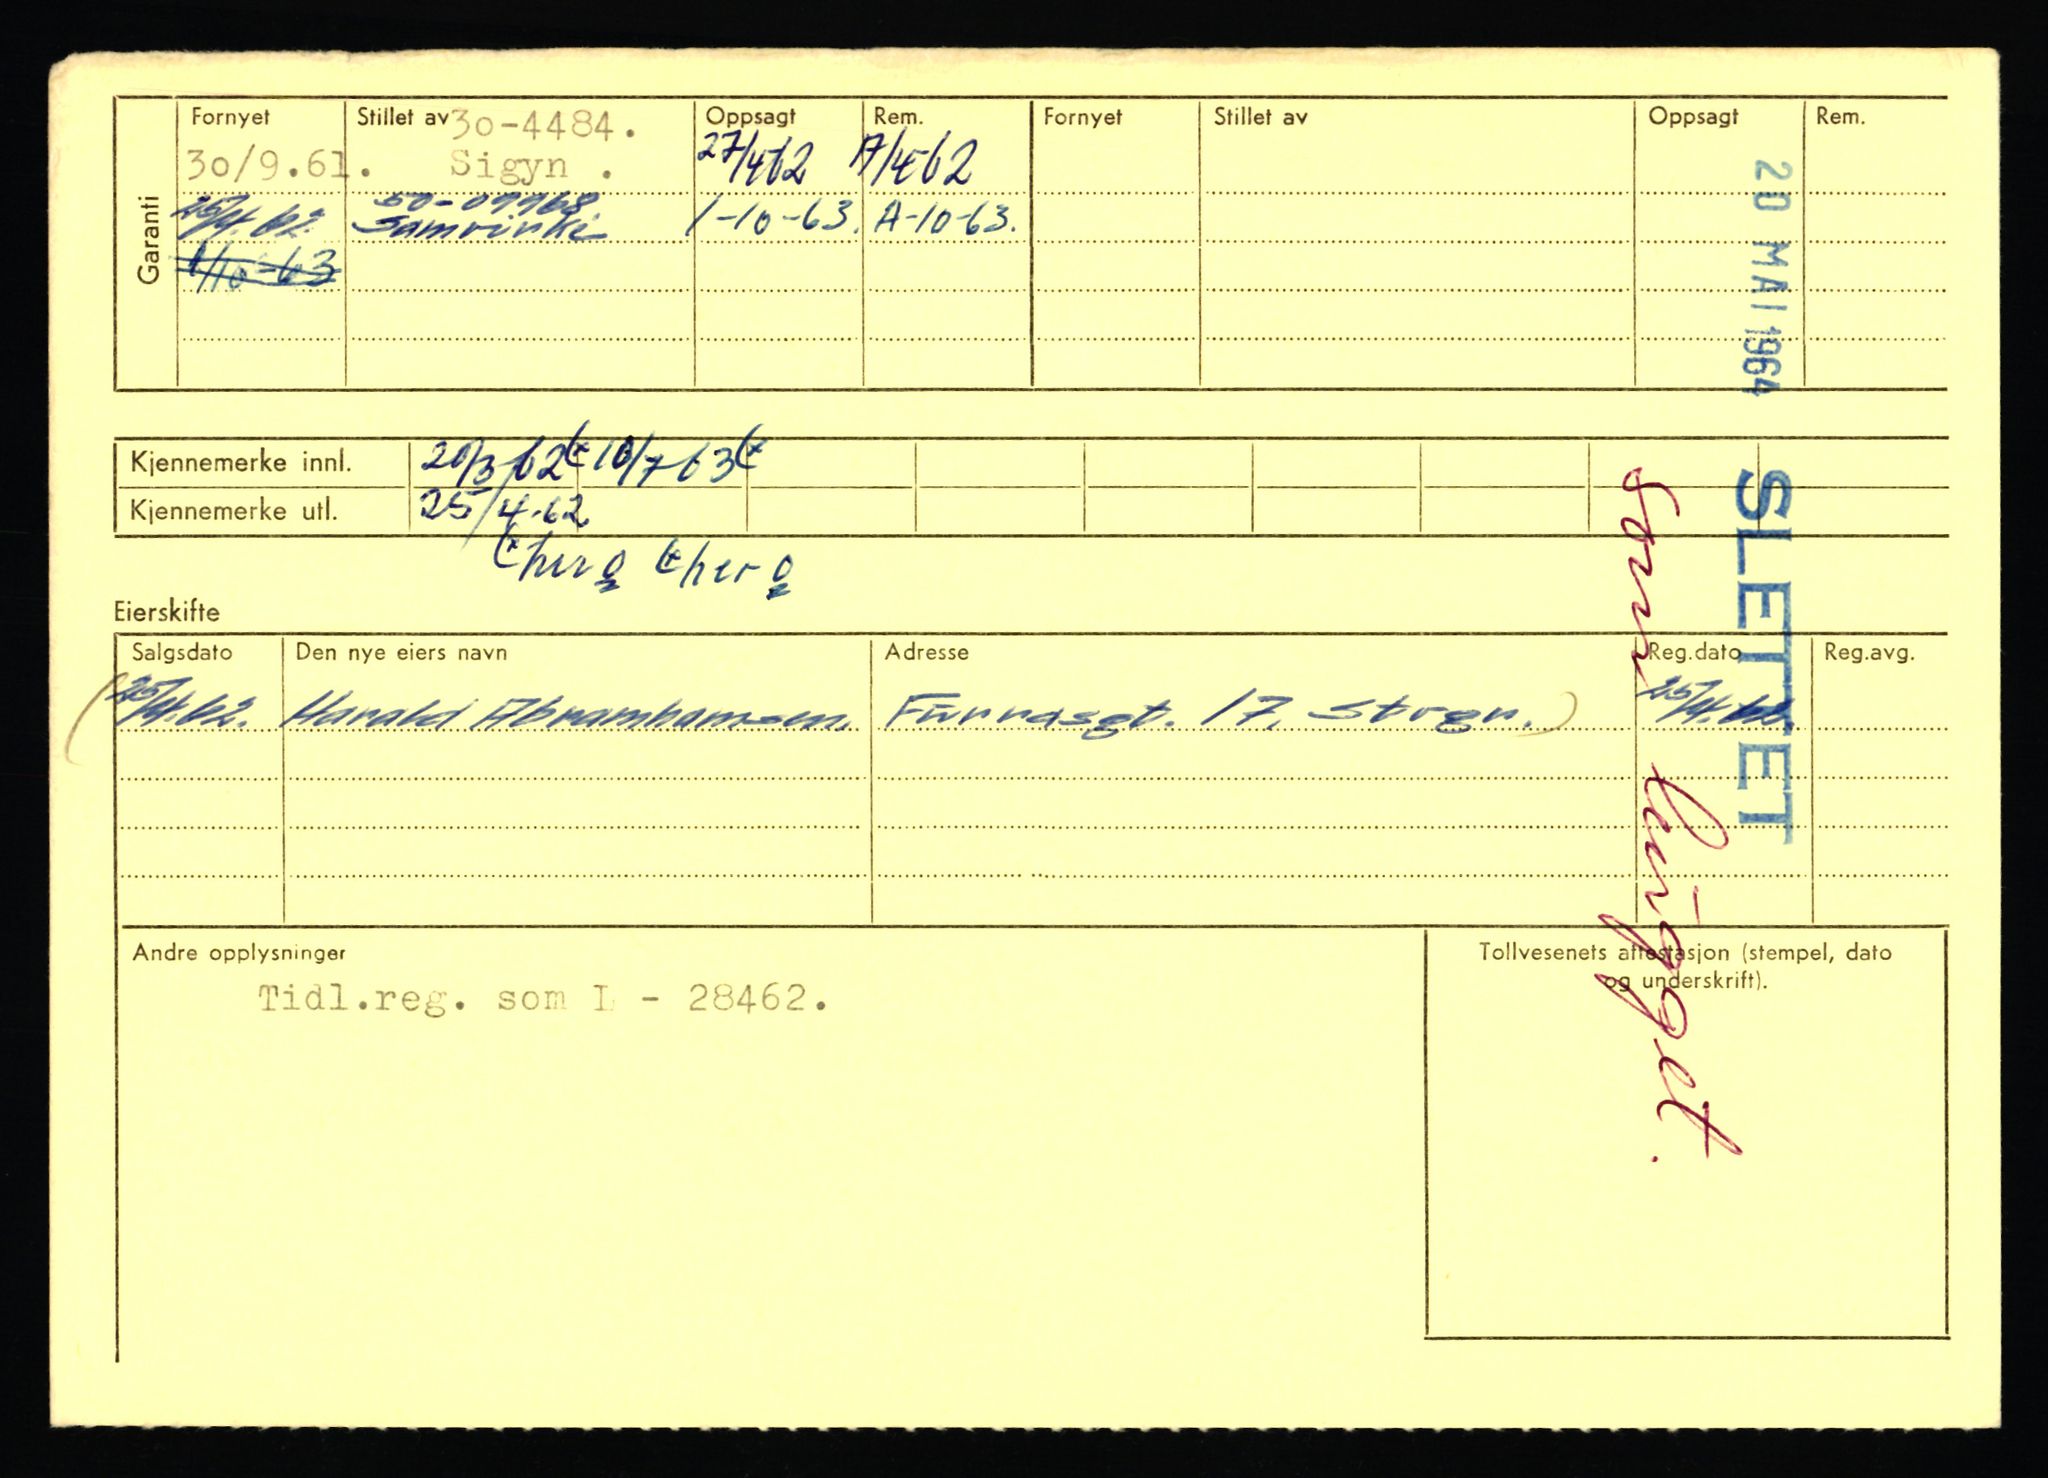 Garanti
Fornyet Stillet av 3o-4484. Oppsagt Rem. Fornyet Stillet av Oppsagt Rem.
3o/9.61. Sigyn . 27/4 62 A/4-62
50-09968
25/4.62. Samvirke 1-10-63. A-10-63.
1/10-63
20 MAI 1964
Kjennemerke innl. 20/3 62 10/7 63
Kjennemerke utl. 25/4-62
SLETTET
Som hugget.
Eierskifte
Salgsdato Den nye eiers navn Adresse Reg.dato Reg.avg.
(25/4.62. Harald Abramhamsen. Furrasgt. 17. Stvgr.) 25/4.62.
Andre opplysninger
Tidl.reg. som L - 28462.
Tollvesenets attestasjon (stempel, dato
og underskrift).